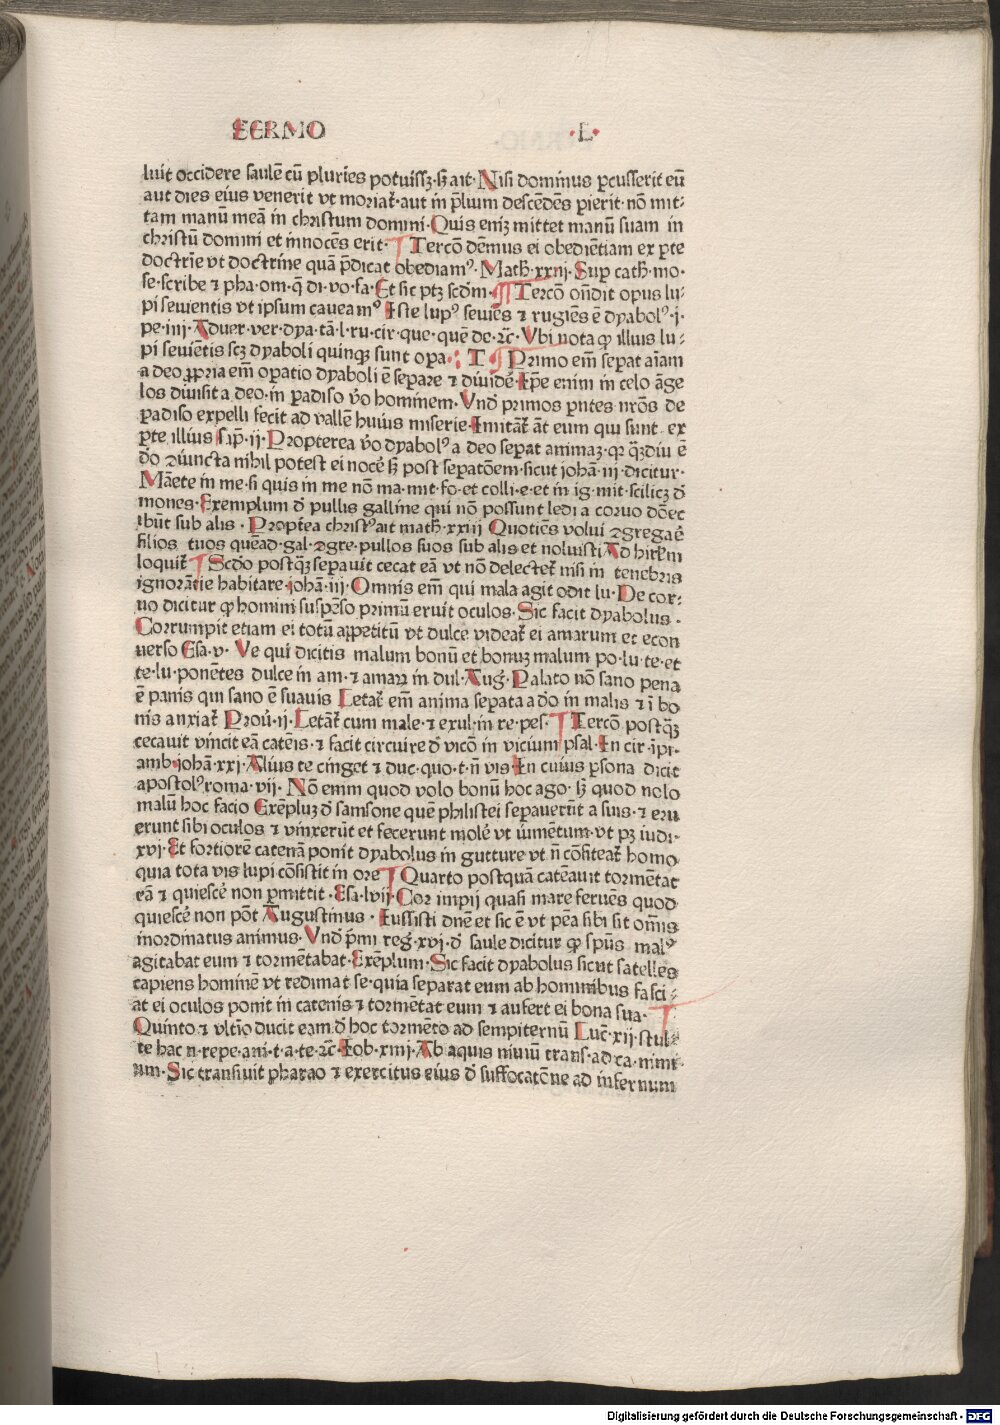 SERMO ·L·
luit occidere saulē cū pluries potuissꝫ·sꝫ ait· Nisi dominus ꝑcusserit eū
aut dies eius venerit vt moriat᷑·aut in p̄lium descēdēs ꝑierit·nō mit⸗
tam manū meā in christum domini·Quis eniꝫ mittet manū suam in
christū domini et innocēs erit· Tercō dēmus ei obediētiam ex ꝑte
doctrīe vt doctrine quā p̄dicat obediamꝰ·Math̄·xxiij·Suꝑ cath̄·mo·
se·scribe ⁊ pha·om·q̄ di·vo·fa·Et sic ptꝫ scd̄m· Tercō on̄dit opus lu⸗
pi seuientis vt ipsum caueamꝰ Iste lupꝰ seuiēs ⁊ rugiēs ē dyabolꝰ·j·
pe·iiij·Aduer·ver·dya·tā·l·ru·cir·que·quē de·⁊c̄·Vbi nota ꝙ illius lu⸗
pi seuiētis scꝫ dyaboli quinqꝫ sunt oꝑa·: T Primo em̄ seꝑat aīam
a deo ꝓpria em̄ oꝑatio dyaboli ē seꝑare ⁊ diuide᷑·Ip̄e enim in celo āge
los diuisit a deo·in ꝑadiso v̄o hominem·Vnd̄ primos ꝑntes nr̄os de
ꝑadiso expelli fecit ad vallē huius miserie·Imitāt᷑ āt eum qui sunt ex
ꝑte illius sap̄·ij·Propterea v̄o dyabolꝰ a deo seꝑat animaꝫ·qꝛ qꝫdiu ē
d̄o ꝯiuncta nihil potest ei nocē᷑ sꝫ post seꝑatōem·sicut johā·iij·dicitur·
Māete in me·si quis in me nō ma·mit·fo·et colli·e·et in ig·mit·scilicꝫ d̄
mones·Exemplum d̄ pullis galline qui nō possunt ledi a coruo dōec
sūt sub alis·Propt̄ea christꝰ ait math̄·xxiij Quotiēs volui ꝯgregar̄
filios tuos quēad·gal·ꝯgre·pullos suos sub alis et noluisti Ad hirl̄m
loquit᷑ Scd̄o postqꝫ seꝑauit cecat eā vt nō delectet᷑ nisi in tenebris
ignorātie habitare·johā·iij·Omnis em̄ qui mala agit odit lu·De cor⸗
uo dicitur ꝙ homini suspēso primū eruit oculos·Sic facit dyabolus·
Corrumpit etiam ei totū appetitū vt dulce videat᷑ ei amarum et econ
uerso Esa·v·Ve qui dicitis malum bonū et bonuꝫ malum po·lu·te·et
te·lu·ponētes dulce in am·⁊ amarꝫ in dul·Aug᷑·Palato nō sano pena
ē panis qui sano ē suauis Letat᷑ em̄ anima seꝑata a d̄o in malis ⁊ ī bo
nis anxiat᷑ Prou᷑·ij·Letāt᷑ cum male·⁊ exul·in re·pes· Tercō postqꝫ
cecauit vincit eā catēis·⁊ facit circuire d̄ vicō in vicium psal·In cir·īpi·
amb·johā·xxj·Alius te cinget ⁊ duc·quo·t·n̄ vis·In cuius ꝑsona dicit
apostolꝰ roma·vij·Nō enim quod volo bonū hoc ago·sꝫ quod nolo
malū hoc facio Exēpluꝫ d̄ samsone quē philistei seꝑauerūt a suis·⁊ eru
erunt sibi oculos ⁊ vinxerūt et fecerunt mole᷑ vt iumentum·vt pꝫ iudi·
xvj·Et fortiorē catenā ponit dyabolus in gutture vt n̄ cōfiteat᷑ homo
quia tota vis lupi cōsistit in ore Quarto postquā catēauit tormētat
eā ⁊ quiesce᷑ non ꝑmittit·Esa·lvij·Cor impij quasi mare feruēs quod
quiesce᷑ non pōt Augustinus·Iussisti dnē et sic ē vt pēa sibi sit om̄is
inordinatus animus·Vnd̄ p̄mi reg᷑·xvj·d̄ saule dicitur ꝙ spūs malꝰ
agitabat eum ⁊ tormētabat·Exēplum·Sic facit dyabolus sicut satelles
capiens hominē vt redimat se·quia seꝑarat eum ab hominibus fasci⸗
at ei oculos ponit in catenis ⁊ tormētat eum ⁊ aufert ei bona sua·
Quinto ⁊ vltīo ducit eam d̄ hoc tormēto ad sempiternū Luc̄·xij·stul⸗
te hac n·repe·ani·t·a·te·⁊c̄·Iob·xxiiij·Ab aquis niuiū trans·ad ca·nimi·
um·Sic transiuit pharao ⁊ exercitus eius d̄ suffocatōne ad infernum